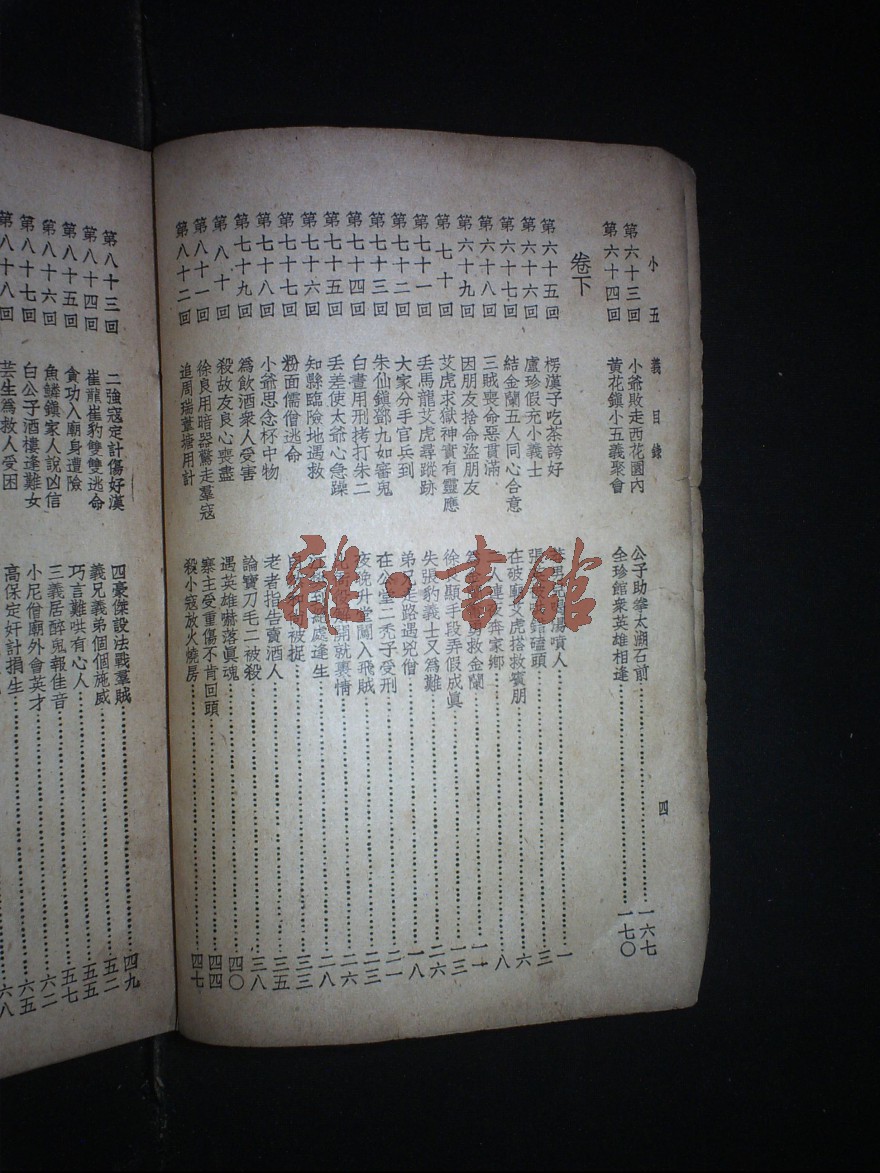 小五義目錄
四
第六十三回 小爺敗走西花園內 公子助拳太湖石前 一六七
第六十四回 黃花鎮小五義聚會 全珍館衆英雄相逢 一七〇
卷下
第六十五回 楞漢子吃茶誇好 噴人 一
第六十六回 盧珍假充小義士 張 磕頭 三
第六十七回 結金蘭五人同心合意 在破廟艾虎搭救賓朋 六
第六十八回 三賊喪命惡貫滿 人連 奔家鄉 八
第六十九回 因朋友捨命盜朋友 救金蘭 一一
第七十回 艾虎求獄神實有靈應 徐良顯手段弄假成眞 一三
第七十一回 丢馬龍艾虎尋蹤跡 失張豹義士又爲難 一八
第七十二回 大家分手官兵到 弟兄走路遇兇僧 二一
第七十三回 朱仙鎮鄧九如審鬼 在公堂二禿子受刑 二三
第七十四回 白晝用刑拷打朱二 夜晚升堂闖入飛賊 二六
第七十五回 丢差使太爺心急躁 開就裏情 二八
第七十六回 知縣臨險地遇救 江 處逢生 三三
第七十七回 粉面儒僧逃命 自 被捉 三三
第七十八回 小爺思念杯中物 老者指告賣酒人 三五
第七十九回 爲飲酒衆人受害 論寶刀毛二被殺 三八
第八十回 殺故友良心喪盡 遇英雄嚇落眞魂 四〇
第八十一回 徐良用暗器驚走羣寇 寨主受重傷不肯回頭 四四
第八十二回 追周瑞葦塘用計 殺小寇放火燒房 四七
第八十三回 二強寇定計傷好漢 四豪傑設法戰羣賊 四九
第八十四回 崔龍崔豹雙雙逃命 義兄義弟個個施威 五二
第八十五回 貪功入廟身遭險 巧言難哄有心人 五五
第八十六回 魚鱗鎮家人說凶信 三義居醉鬼報佳音 五七
第八十七回 白公子酒樓逢難女 小尼僧廟外會英才 六二
第八十八回 芸生爲救人受困 高保定奸計損生 六五
六八
雜·書館